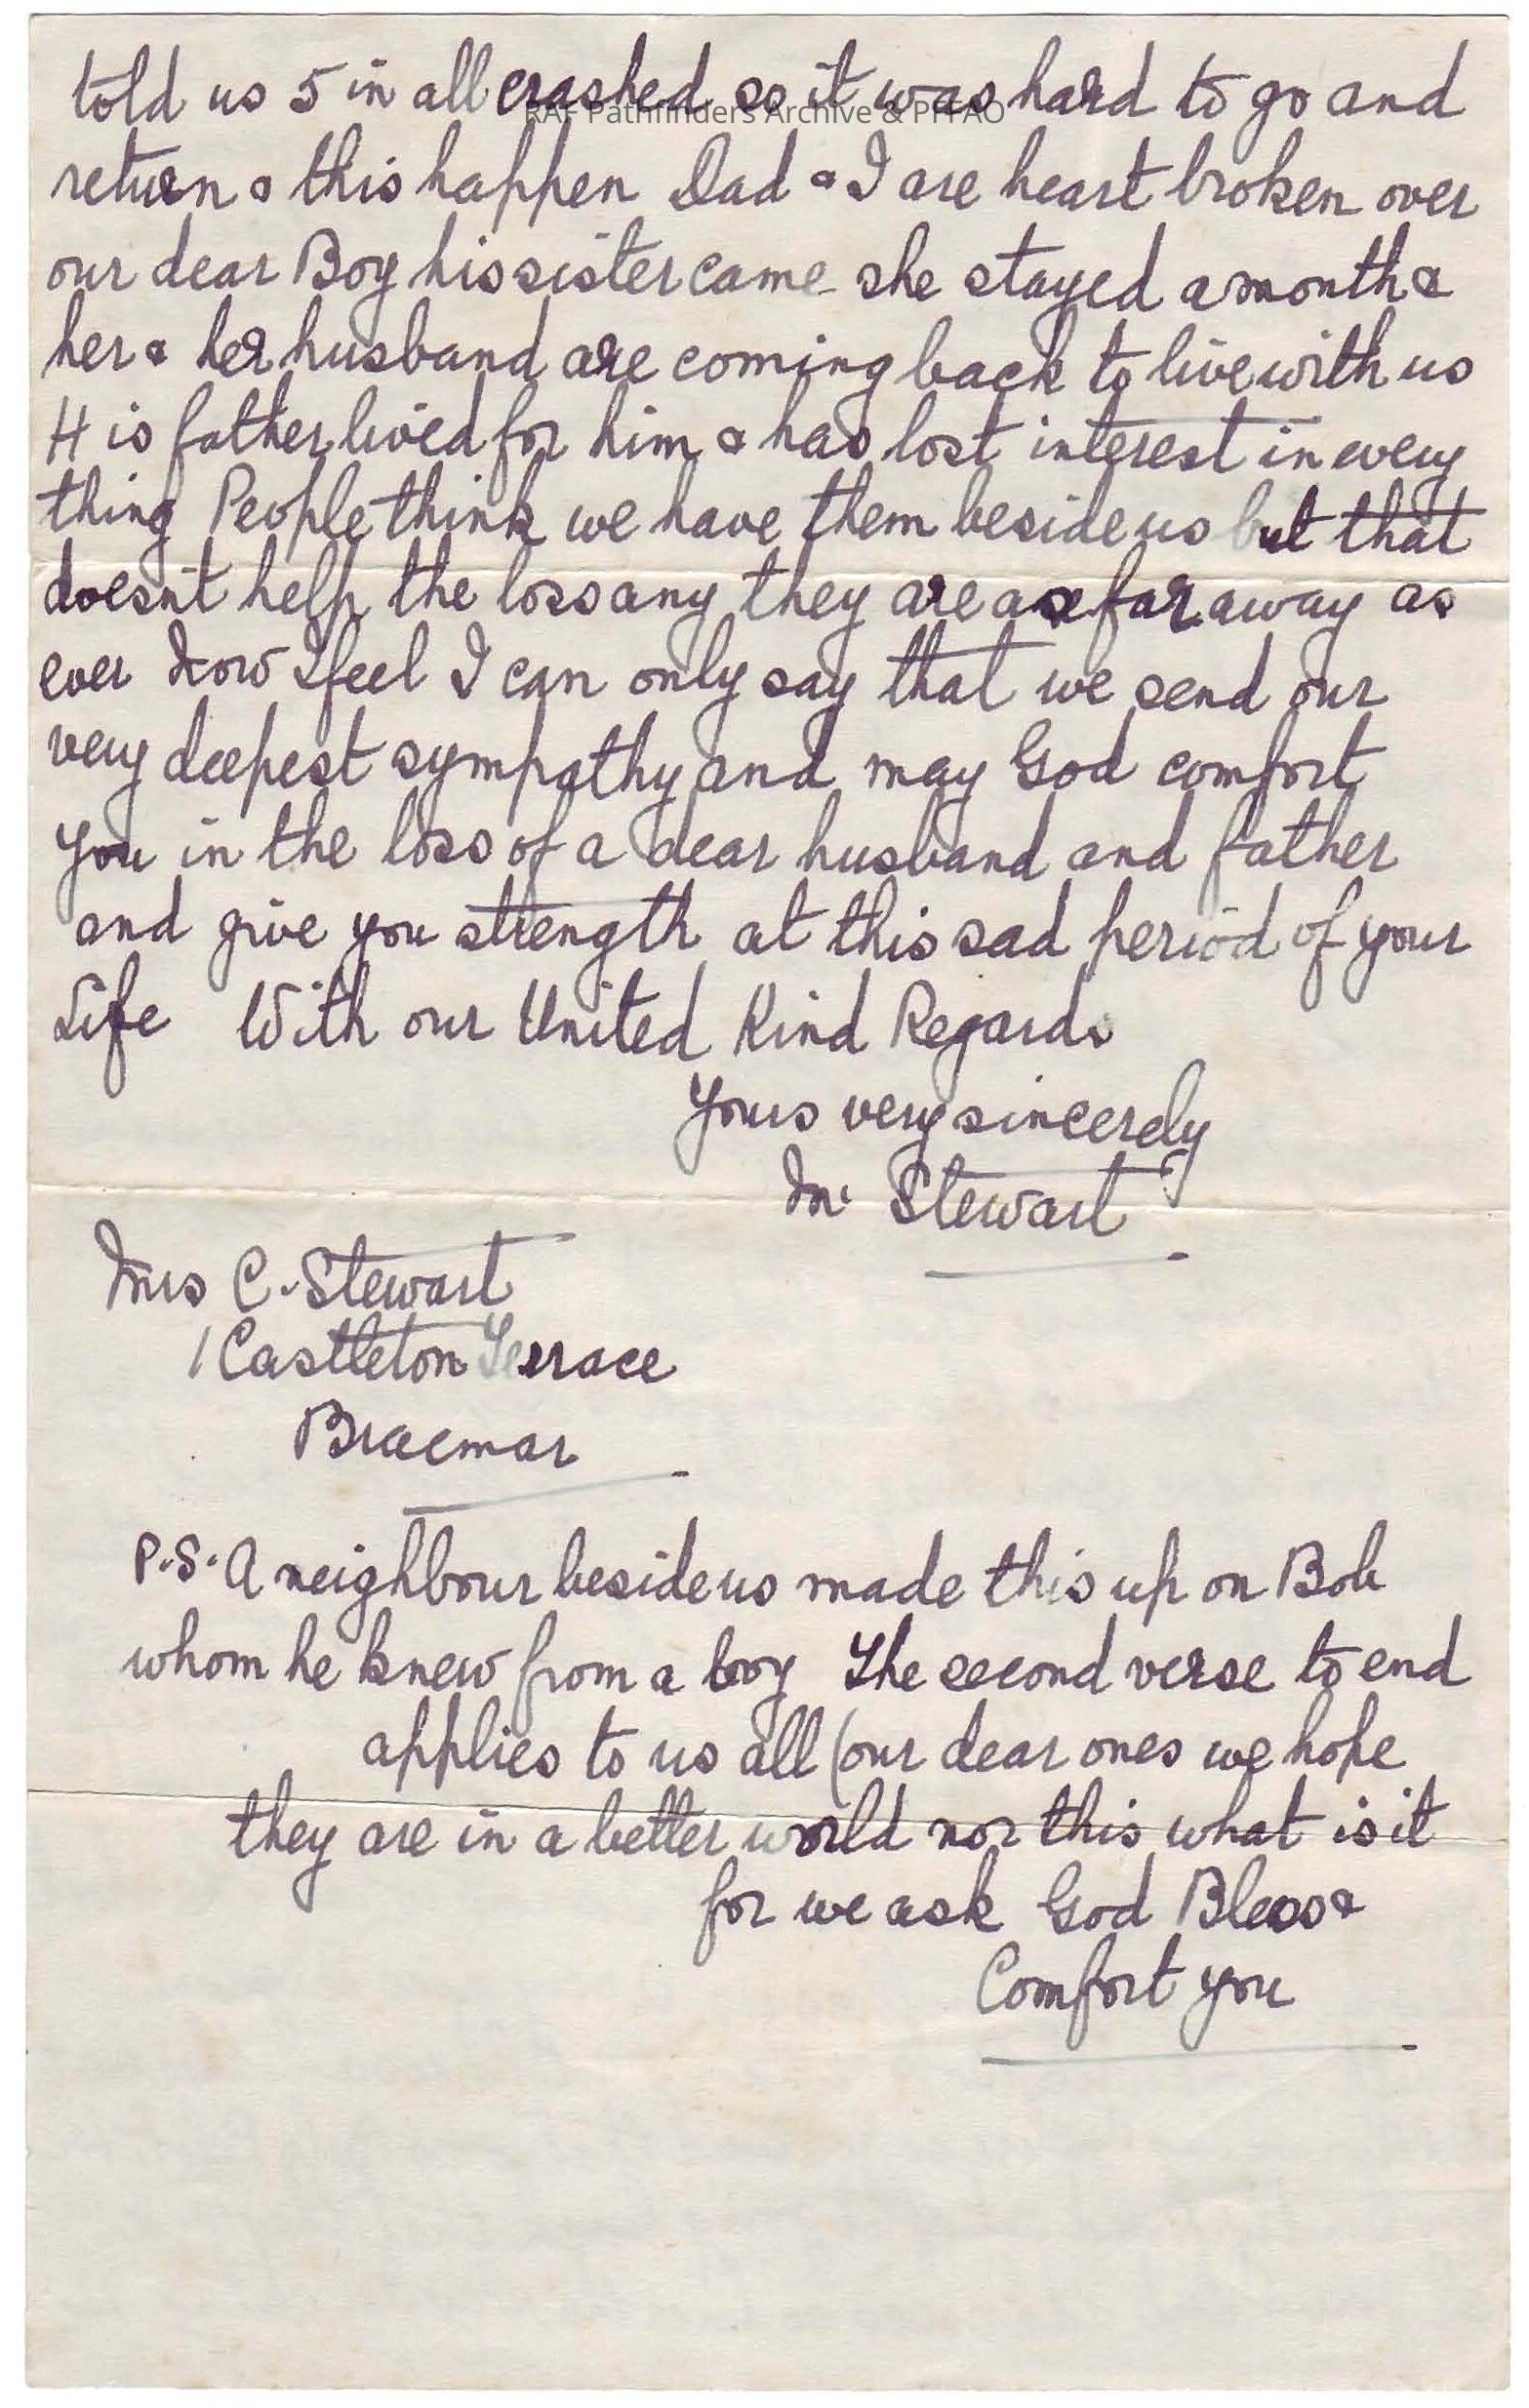 told us 5 in all crashed so it was hard to go and
RAF Pathfinders Archive & PFFAO
return & this happen Dad & I are heart broken over
our dear Boy his sister came she stayed a month &
her & her husband are coming back to live with us
His father lived for him & has lost interest in every
thing People think we have them beside us but that
doesn't help the loss any they are as far away as
ever how I feel I can only say that we send our
very deepest sympathy and may God comfort
you in the loss of a dear husband and father
and give you strength at this sad period of your
Life With our United Kind Regards
Yours very sincerely
M. Stewart
Mrs C. Stewart
1 Castleton Terrace
Braemar
P.S. A neighbour beside us made this up on Bob
whom he knew from a boy The second verse to end
applies to us all (our dear ones we hope
they are in a better world nor this what is it
for we ask God Bless &
Comfort you